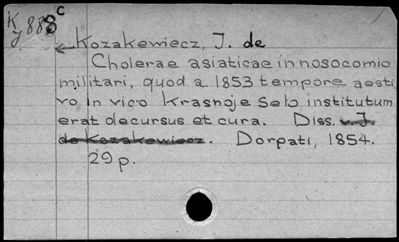 K C
y 888
Kozakewiecz, J. de
Cholerae asiaticae in nosocomio
militari, quod a. 1853 tempore aesti
vo in vico Krasnoje Selo institutum
erat decursus et cura. Diss. v. J.
de Kozakewiecz. Dorpati, 1854.
29 p.